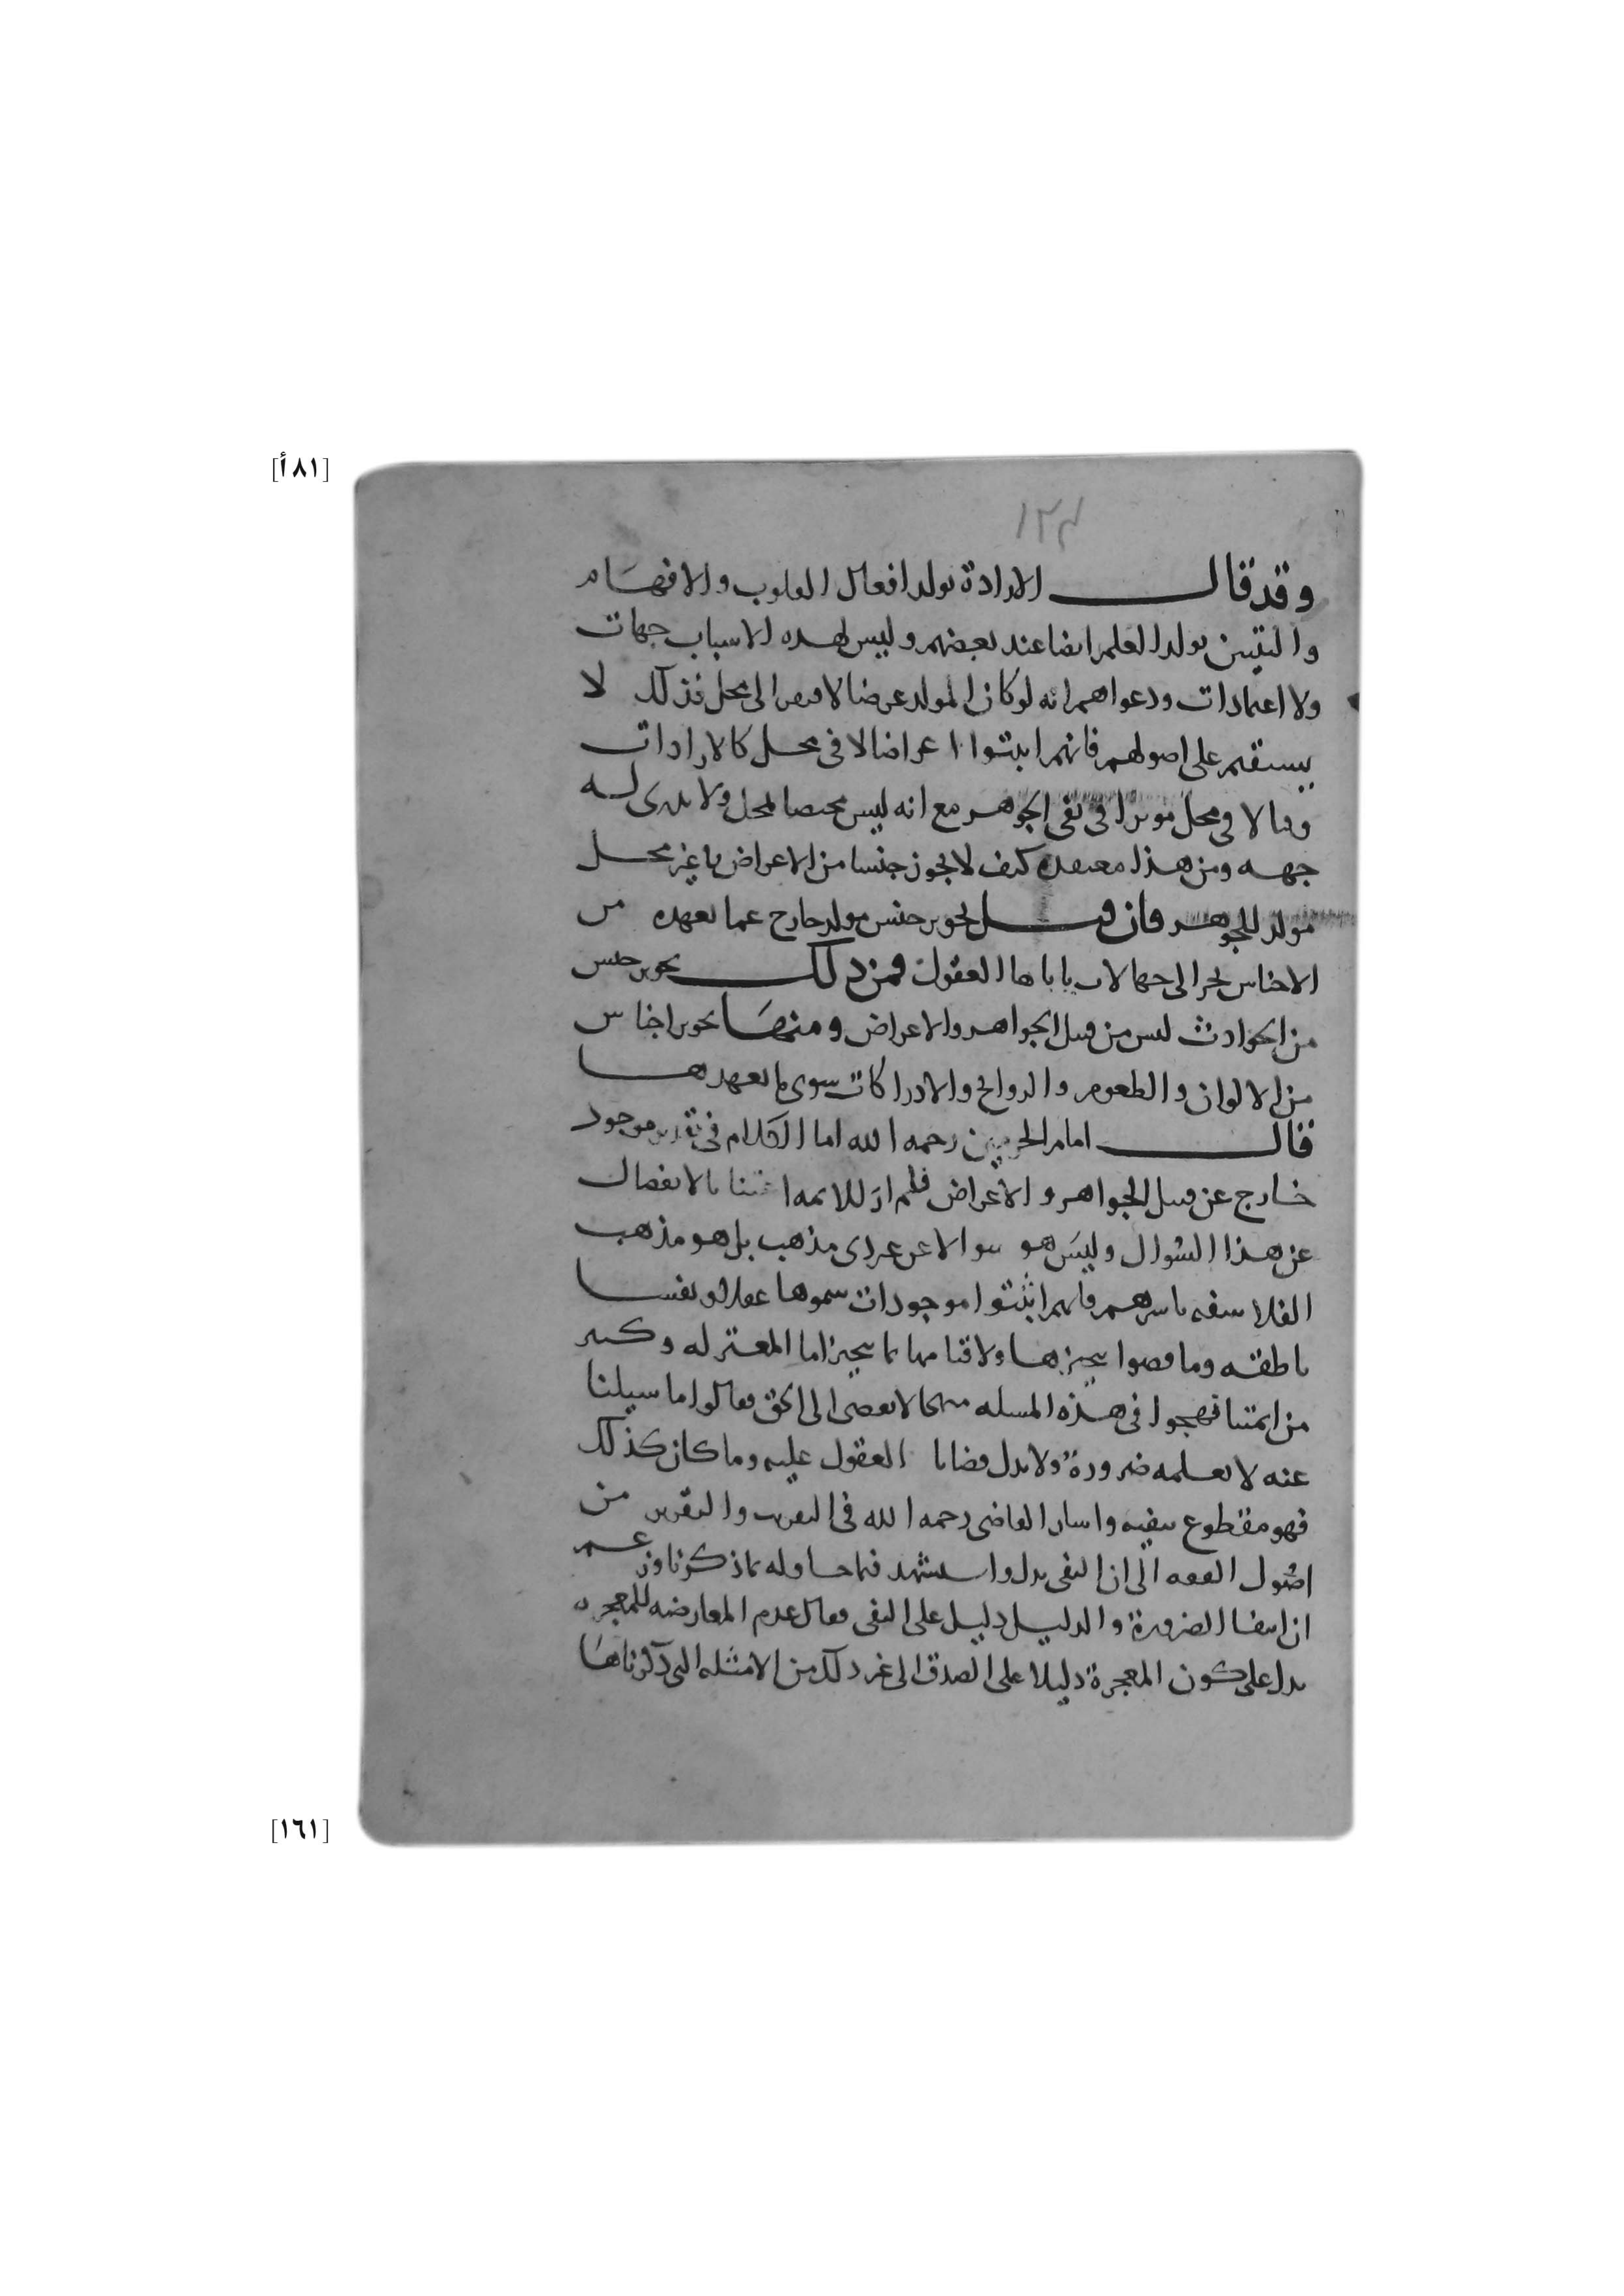 [٨١أ]
١٣٢
وقد قال الارادة تولد افعال القلوب والافهام
واليقين تولد العلم ايضا عند بعضهم وليس لهذه الاسباب جهات
ولا اعتمادات ودعواهم انه لو كان المولد عرضا لافتقر الى محل فذلك لا
يستقيم على اصولهم فانهم اثبتوا اعراضا لا في محل كالارادات
وفنا لا في محل موثرا في نفي الجوهر مع انه ليس مختصا بمحل ولا يدرى له
جهه ومن هذا معتقده كيف لا يجوز جنسا من الاعراض في غير محل
مولد للجوهر فان قيل تجويز جنس مولد خارج عما نعهده من
الاجناس يجر الى جهالات ياباها العقول فمن ذلك تجويز جنس
من الحوادث ليس من قبيل الجواهر والاعراض ومنها تجويز اجناس
من الالوان والطعوم والروايح والادراكات سوى ما نعهدها
قال امام الحرمين رحمه الله اما الكلام في تقدير موجود
خارج عن قبيل الجواهر والاعراض فلم ار للايمه اعتنا بالانفصال
عن هذا السوال وليس هو سوالا عن عرى مذهب بل هو مذهب
الفلاسفه باسرهم فانهم اثبتوا موجودات سموها عقلا ونفسا
ناطقه وما قضوا بتحيزها ولا قيامها بما يتحيز اما المعتزله وكثير
من ايمتنا فنهجوا في هذه المسله منهجا لا يفضى الى الحق فقالوا ما سيلنا
عنه لا نعلمه ضرورة ولا يدل قضايا العقول عليه وما كان كذلك
فهو مقطوع بنفيه واشار القاضي رحمه الله في التقريب والتقرير من
اصول الفقه الى ان النفي يدل واستشهد فيما حاوله بما ذكرناه وزعم
ان انتفا الضرورة والدليل دليل على النفي فقال عدم المعارضه للمعجزه
يدل على كون المعجزة دليلا على الصدق الى غير ذلك من الامثله التي ذكرناها
[١٦١]